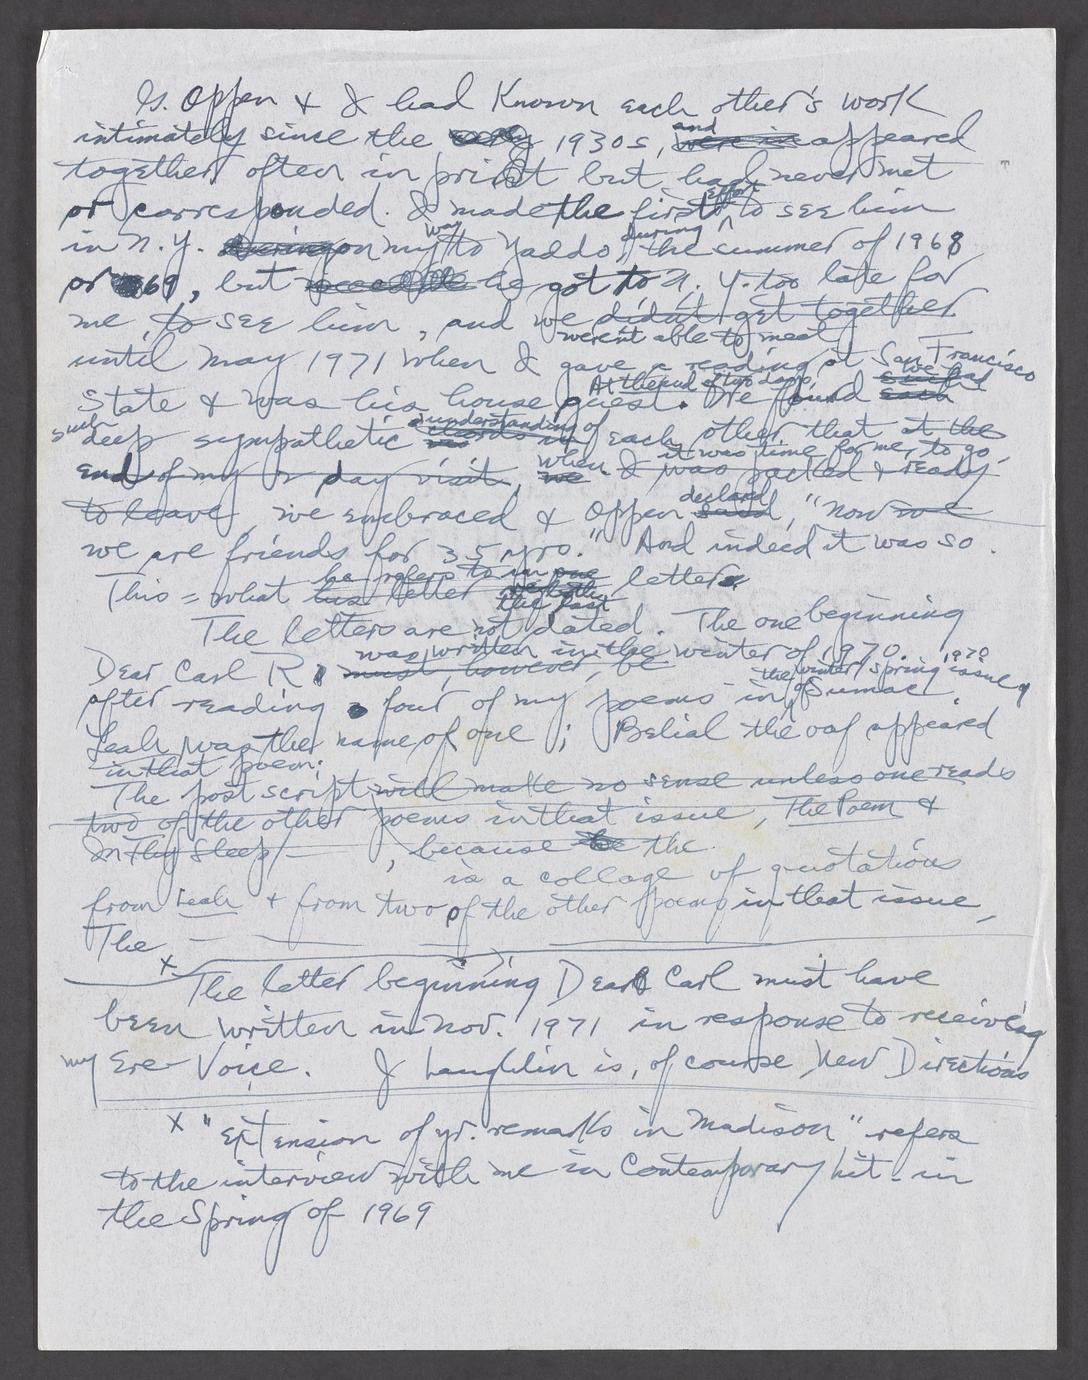 G. Oppen & I had Known each other's work
intimately since the early 1930s, and were in appeared
together often in print but had never met
or corresponded. I made the first effort to see him
in N.Y. during on my way to Yaddo, during the summer of 1968
or 69, but he got to N.Y. too late for
me to see him, and we didn't get together
weren't able to meet
until May 1971 when I gave a reading at San Francisco
State & was his house guest. At the end of two days we had
We found each
such deep sympathetic understanding of each other that at the
end of my 2 day visit, we when I was packed & ready
it was time for me to go,
to leave, we embraced & Oppen said declared, "now we
we are friends for 35 yrs." And indeed it was so.
This = what his letter he refers to in one the last letter
The letters are not dated. The one beginning
Dear Carl R, must, however, be was written in the winter of 1970.
after reading four of my poems in the winter/spring 1970 issue of Sumac.
Leah was the name of one; Belial the oaf appeared
in that poem;
The postscript will make no sense unless one reads
two of the other poems in that issue, The Poem &
In Thy Sleep/ , because the
is a collage of quotations
from Leah & from two of the other poems in that issue,
The
x The letter beginning Dear Carl must have
been written in Nov. 1971 in response to receiving
my Ere-Voice. J Laughlin is, of course, New Directions
x "extension of yr. remarks in Madison" refers
to the interview with me in Contemporary Lit. in
the Spring of 1969